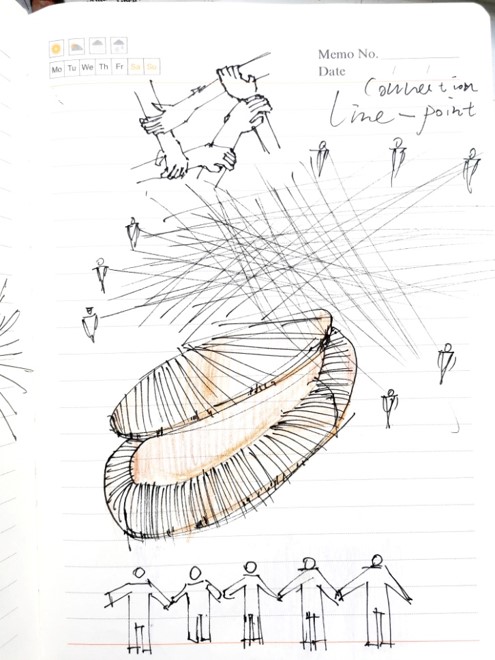 Memo No.
Mo Tu We Th Fr Sa Su
Date / /
Connection
line - point